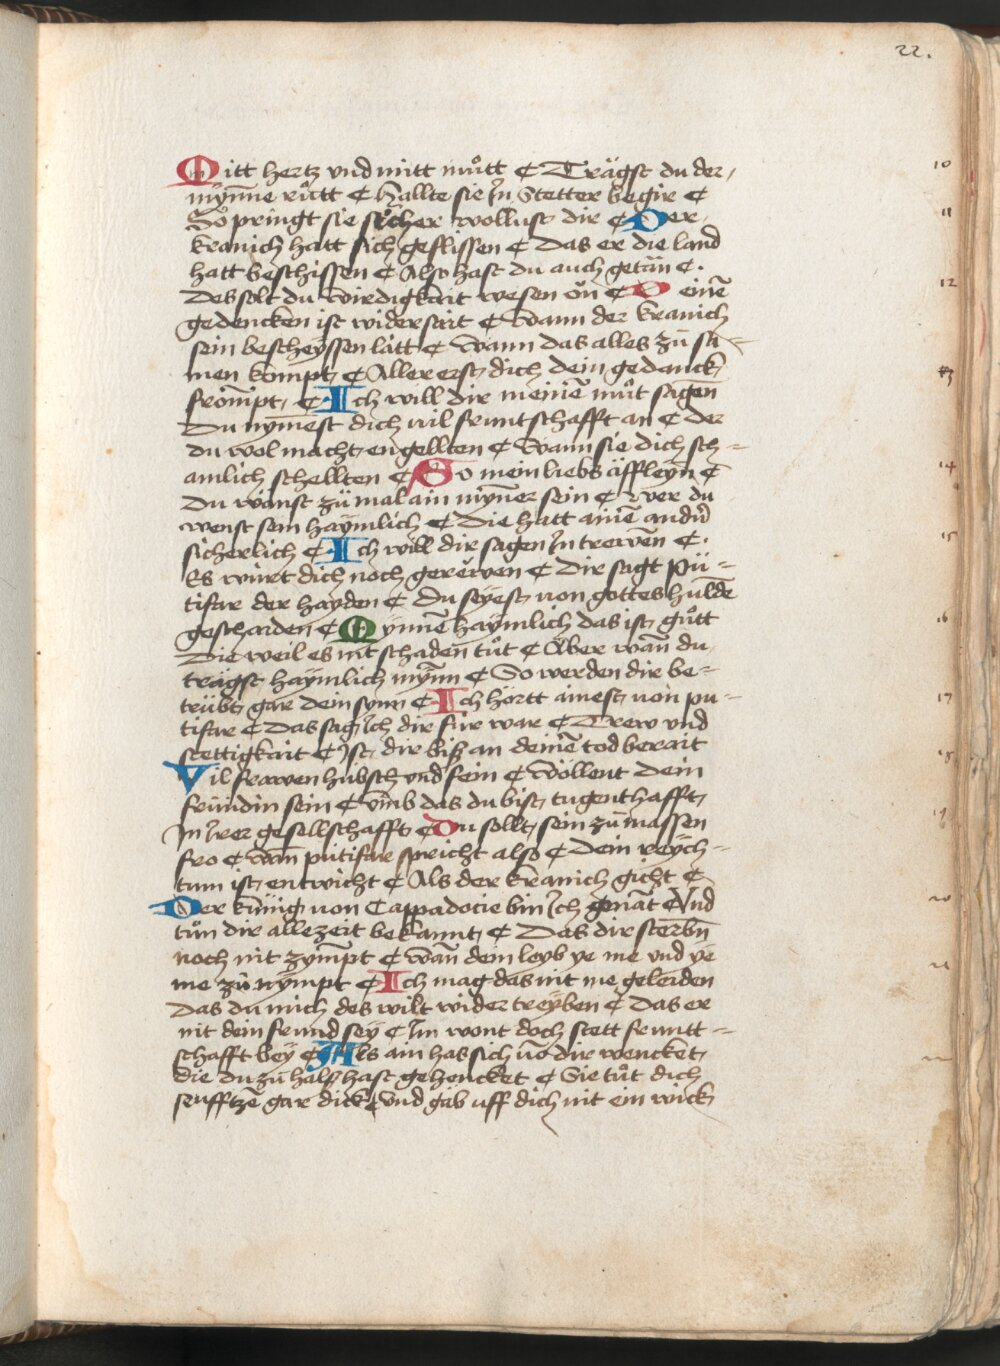 22.
Mitt hertz vnd mitt můtt ¢ Trägst du der
mynne růtt ¢ Hallte sie Jn Stetter begir ¢
So pringt sie sicher wollust dir ¢ Der
kranich hatt sich geflissen ¢ Das er die land
hatt beschissen ¢ Also hast du auch getän ¢.
Des solt du wirdigkait wesen ön ¢ D einē
gedencken ist widersait ¢ Wann der kranich
sein bescheyssen lätt ¢ Wann das alles zů sa-
men kompt ¢ Aller erst dich dein gedanck
frompt ¢ Ich will dir meinē můt sagen
Du nymest dich vil fruntschafft an ¢ der
du wol macht engellten ¢ Wann sie dich sch-
amlich schellten ¢ So mein liebs äffleyn ¢
Du wänst zů mal ain myner sein ¢ Wer du
wenst sein haymlich ¢ Die hatt ainē andn̄
sicherlich ¢ Ich will dir sagen Jn trewen ¢.
Es würt dich noch gerewen ¢ Dir sagt pu-
tifar der hayden ¢ Du seyest von gottes huldē
geschaiden ¢ Mynne haymlich das ist gůtt
Die weil es nit schaden tůt ¢ Aber wan̄ du
trägst haymlich myn̄ ¢ So werden dir be-
trübt gar dein synn ¢ Ich hortt ainest von pu-
tifare ¢ Das sag Jch dir fur war ¢ Trew vnd
stettigkait ¢ Jst dir biß an deinē tod berait
Vil frawen hübsch vnd fein ¢ Wöllent dein
fründin sein ¢ Vmb das du bist tugenthafft
Jn Jrer gesellschafft ¢ Du sollt sein zů massen
fro ¢ Wan̄ putifar spricht also ¢ Dein reych-
tum ist entwicht ¢ Als der kranich gicht ¢
Der künig von Cappadocie bin Jch genāt ¢ Vnd
tůn dir allezeit bekannt ¢ Das dir sterbn̄
noch nit zympt ¢ Wan̄ dein leyb ye me vnd ye
me zů nympt ¢ Ich mag das nit me geleiden
Das du mich des wilt wider treyben ¢ Das er
nit dein freund sey ¢ Im wont doch stett fruntt-
schafft bey ¢ Als ain has sich vō dir wencket
die du zů hals hast gehencket ¢ Sie tůt dich
seufftzē gar dick ¢ Vnd gäb uff dich nit ein wick
10
11
12
13
14
15
16
17
18
19
20
21